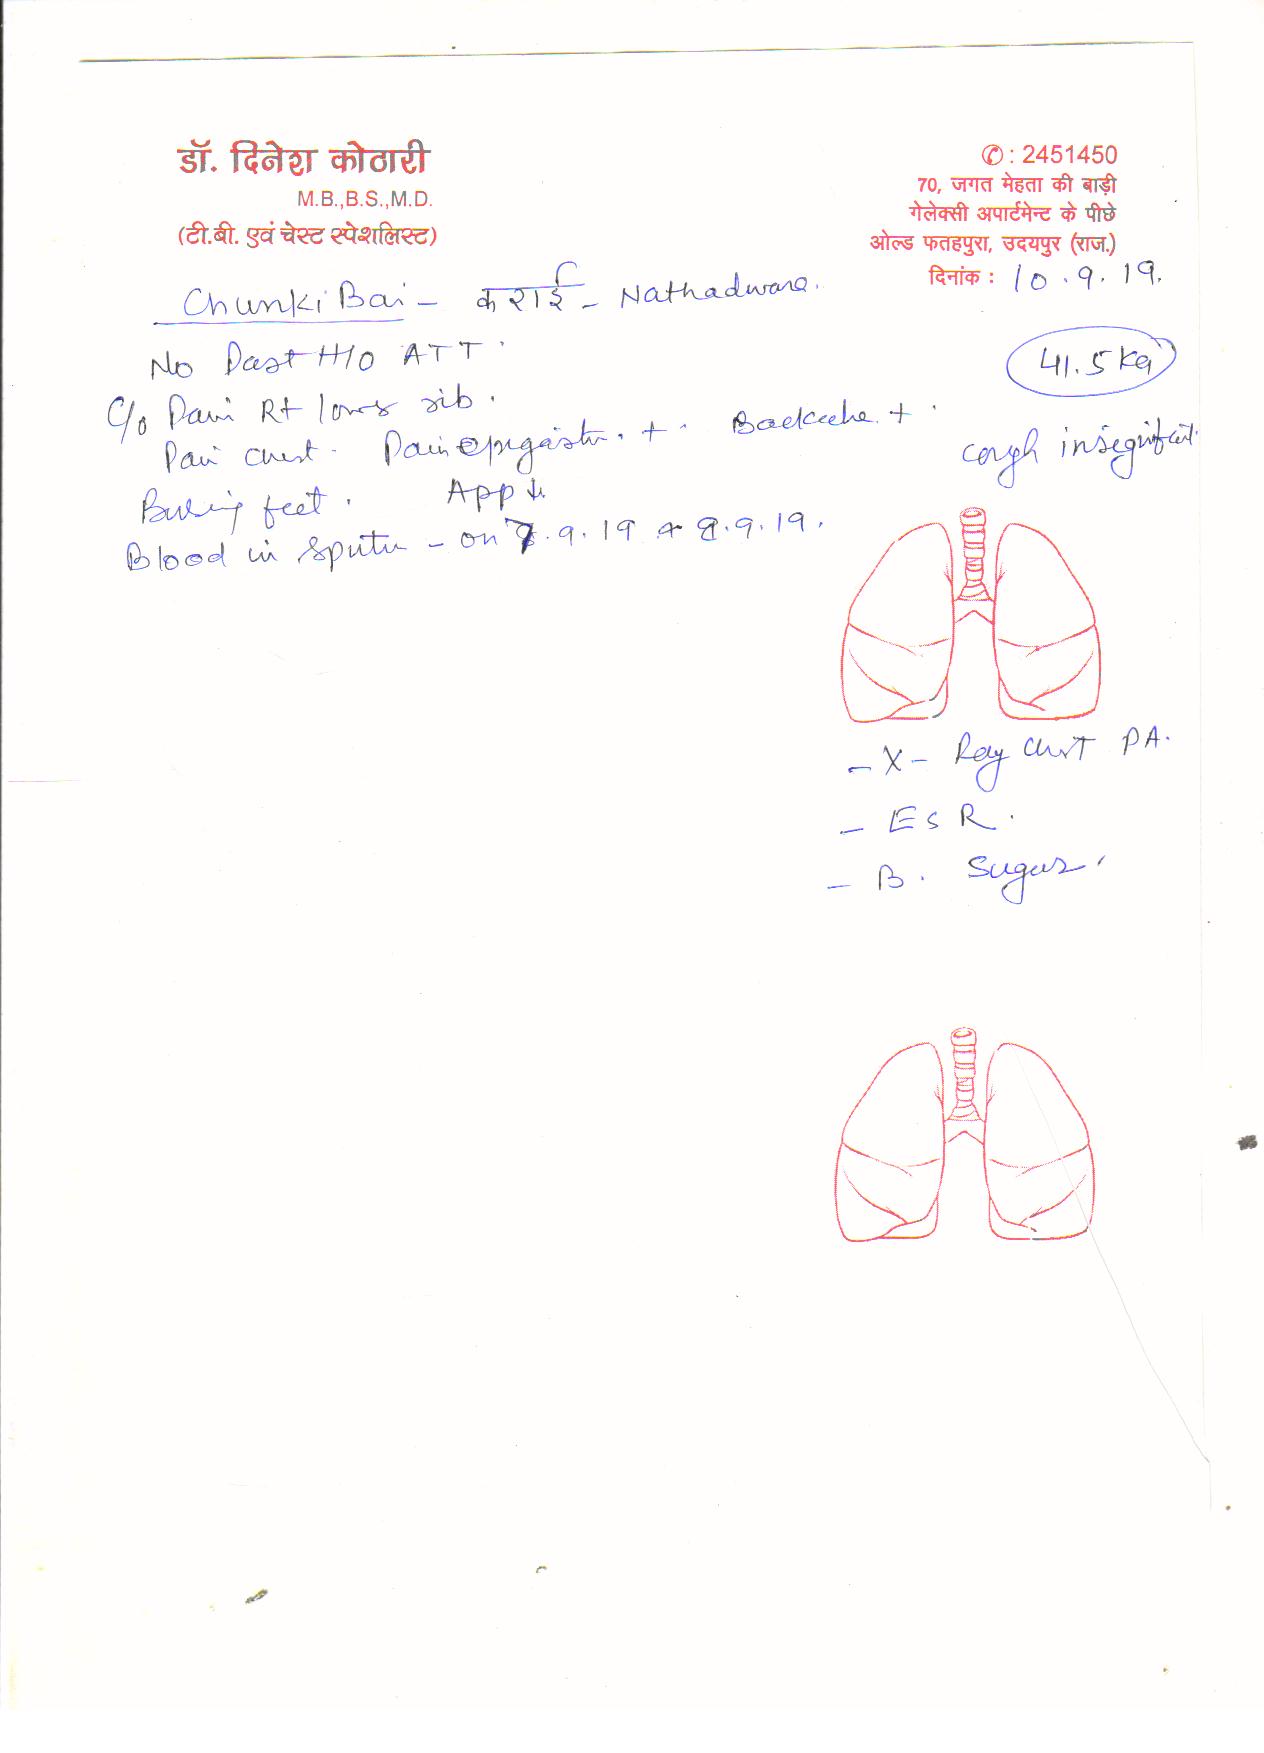 डॉ. दिनेश कोठारी
M.B.,B.S.,M.D.
(टी.बी. एवं चेस्ट स्पेशलिस्ट)
✆ : 2451450
70, जगत मेहता की बाड़ी
गेलेक्सी अपार्टमेन्ट के पीछे
ओल्ड फतहपुरा, उदयपुर (राज.)
दिनांक : 10.9.19.
Chunki Bai - कराई - Nathadwara.
No Past H/O ATT.
41.5 kg
C/o Pain Rt lower rib.
Pain chest. Pain epigastr. +. Backache +.
cough insignificant.
Burning feet. App ↓.
Blood in Sputum - on 7.9.19 & 8.9.19.
- X-Ray Chest PA.
- ESR.
- B. Sugar.